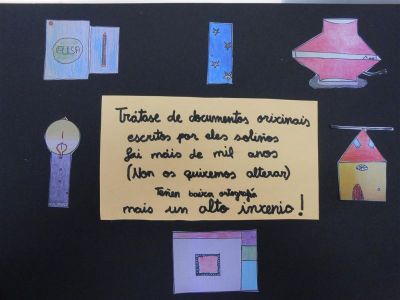 ELISA
Trátase de documentos orixinais
escritos por eles soliños
fai máis de mil anos
(Non os quixemos alterar)
Teñen baixa ortografía
mais un alto inxenio!